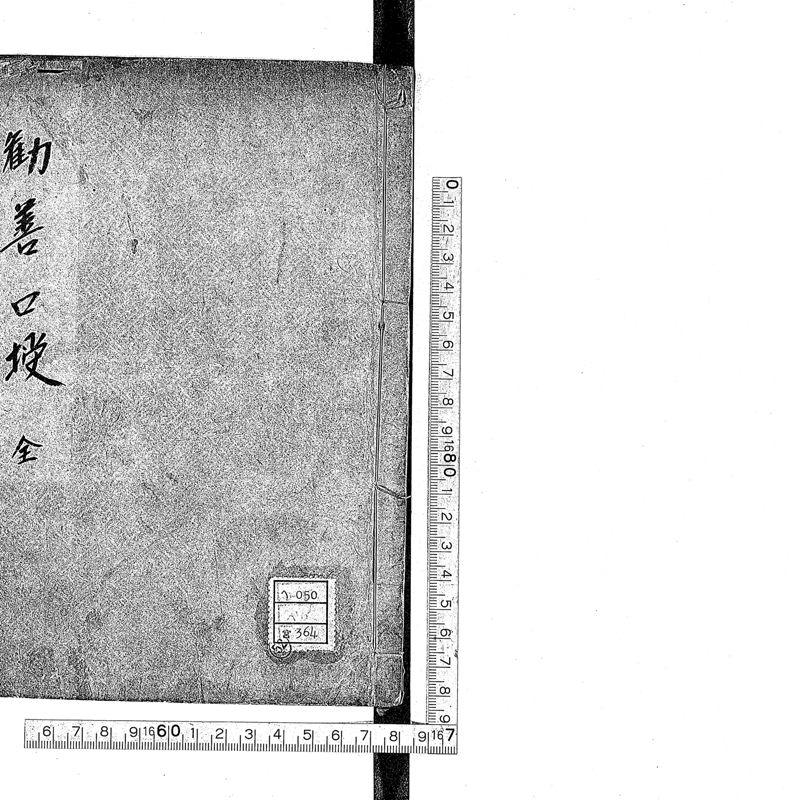 勧善口授 全
ヘ 050
364
0 1 2 3 4 5 6 7 8 9 1680 1 2 3 4 5 6 7 8 9
6 7 8 9 1660 1 2 3 4 5 6 7 8 9 167